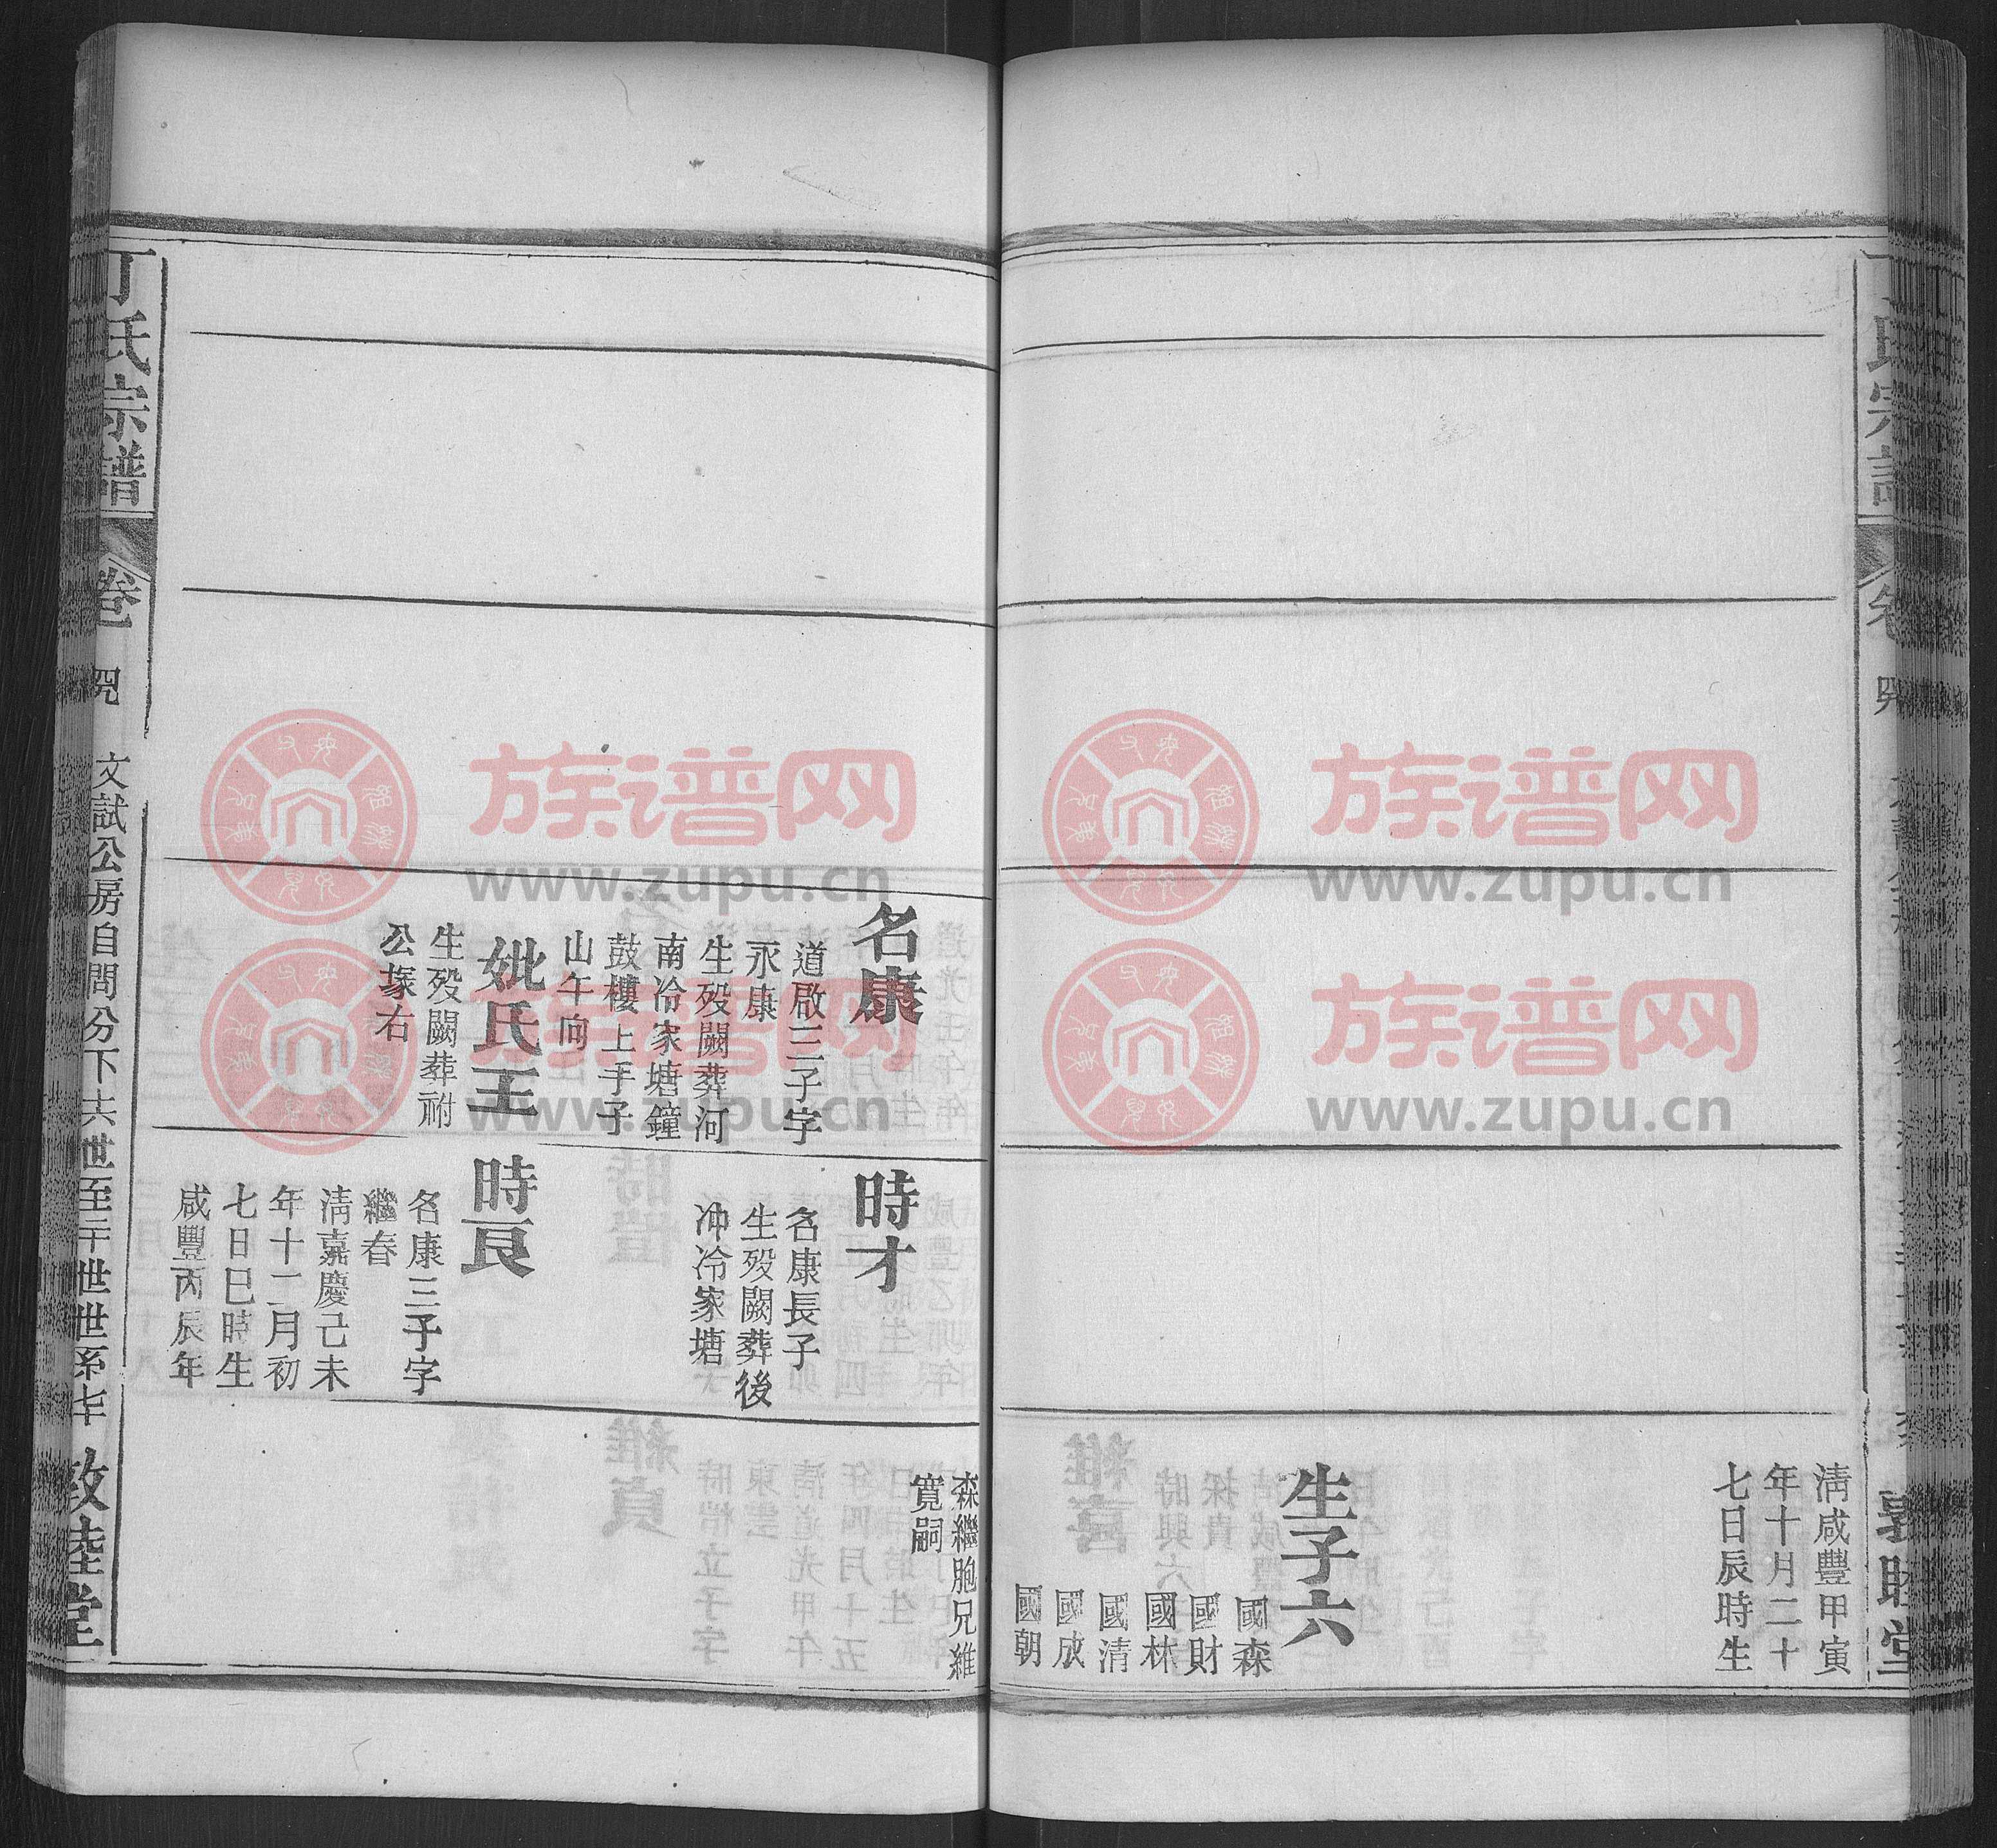 清咸豐甲寅
年十月二十
七日辰時生
生子六
國森
國財
國林
國清
國成
國朝
森繼胞兄維
寬嗣
名康
道啟三子字
永康
生歿闕葬河
南冷家塘鐘
鼓樓上手子
山午向
妣氏王
生歿闕葬祔
公塚右
時才
名康長子
生歿闕葬後
冲冷家塘
時良
名康三子字
繼春
清嘉慶己未
年十二月初
七日巳時生
咸豐丙辰年
丁氏宗譜
卷
文試公房自問分下
世至
世世系
敦睦堂
族谱网
www.zupu.cn
族谱网
www.zupu.cn
族谱网
www.zupu.cn
族谱网
www.zupu.cn